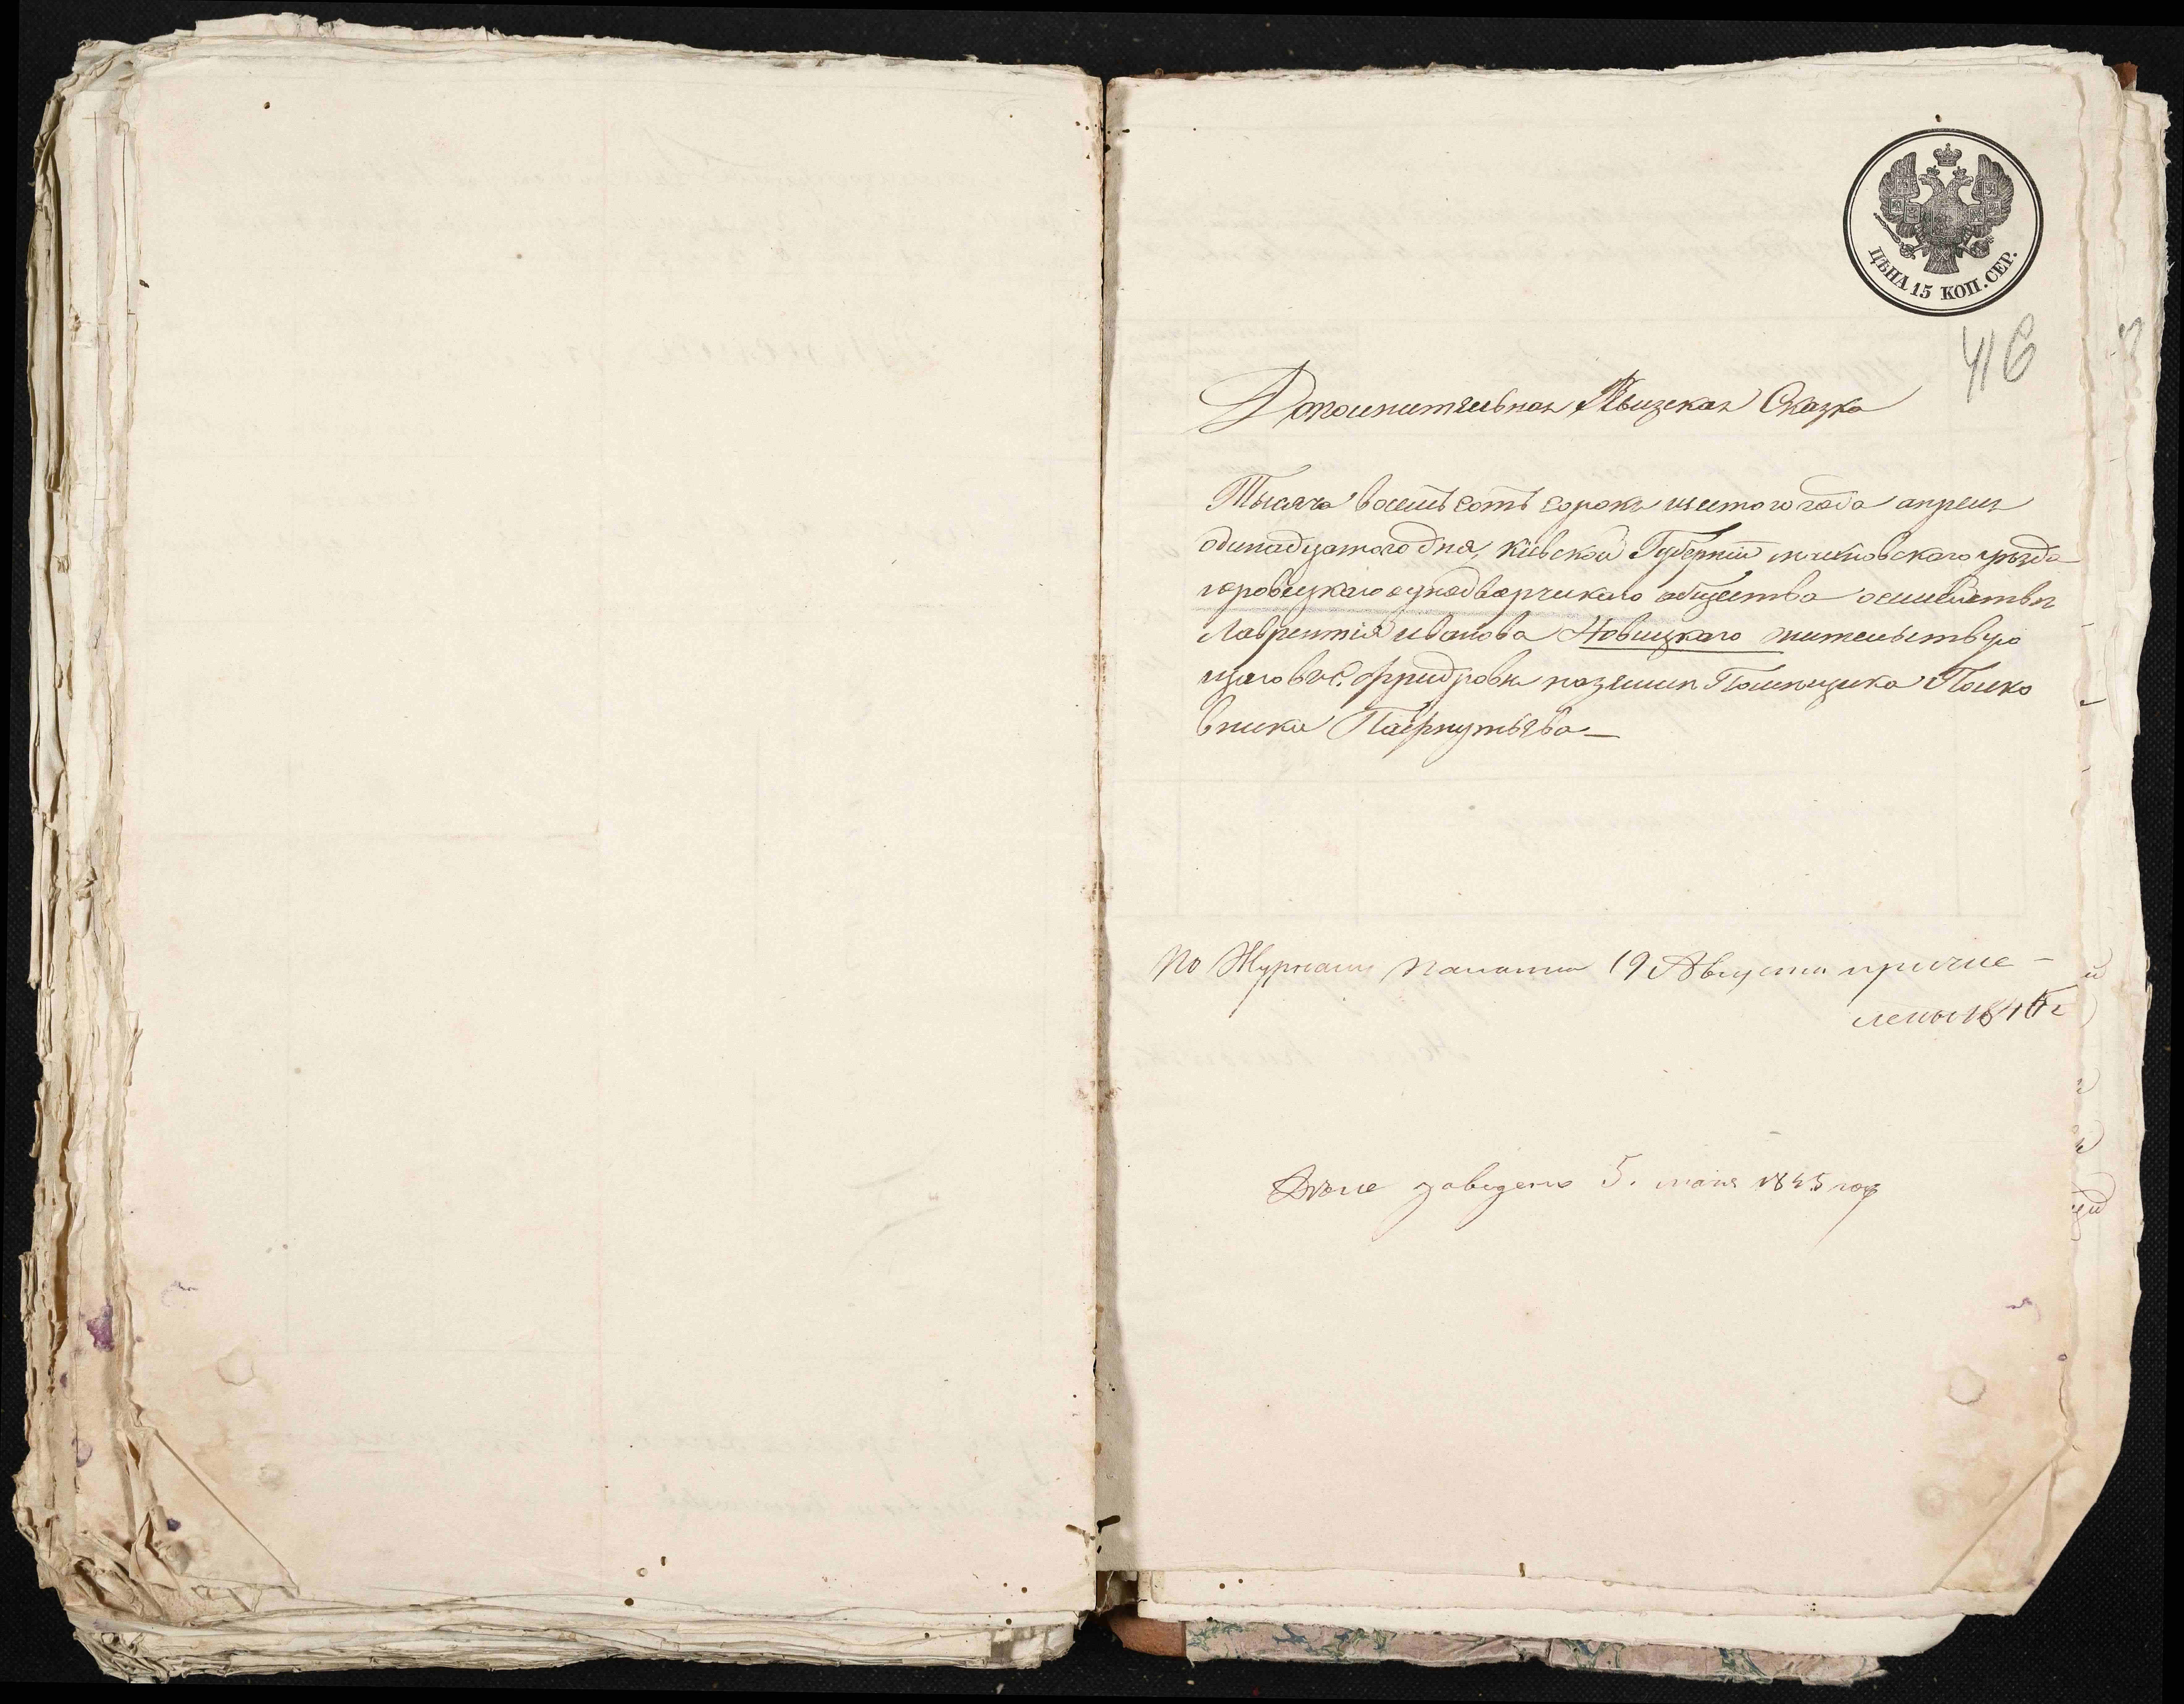 ЦѢНА 15 КОП. СЕР.
416
Дополнительная Ревизская Сказка
Тысяча восемь сотъ сорокъ шестого года апреля
одинадцатого дня, Кіевской Губерніи уѣзда
однодворческаго общества о семействѣ
Лаврентія иванова Новицкаго жительствую
щаго въ С. Фридровкѣ на земли Помещика Полко
вника Пафнутьева —
По Журналу Палаты 19 Августа причис-
лены 1846 г
заведено 5. мая 1845 году